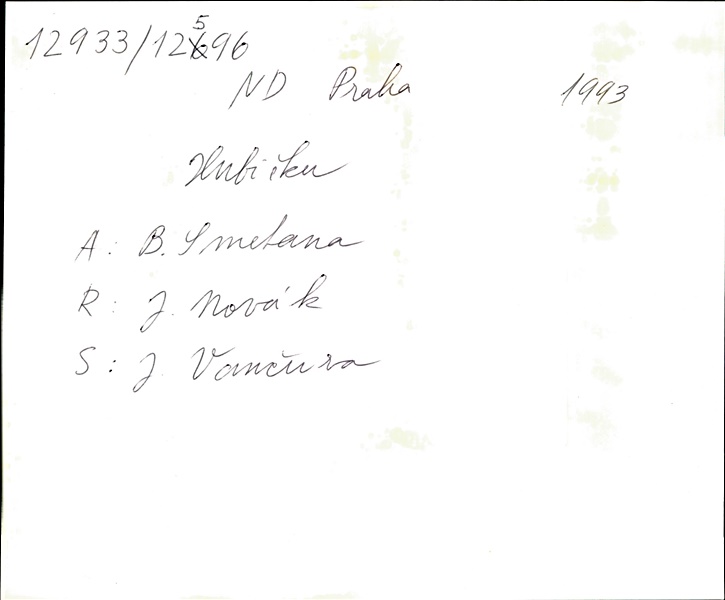 12933/12596
ND Praha 1993
Hubičku
A: B. Smetana
R: J. Novák
S: J. Vančura